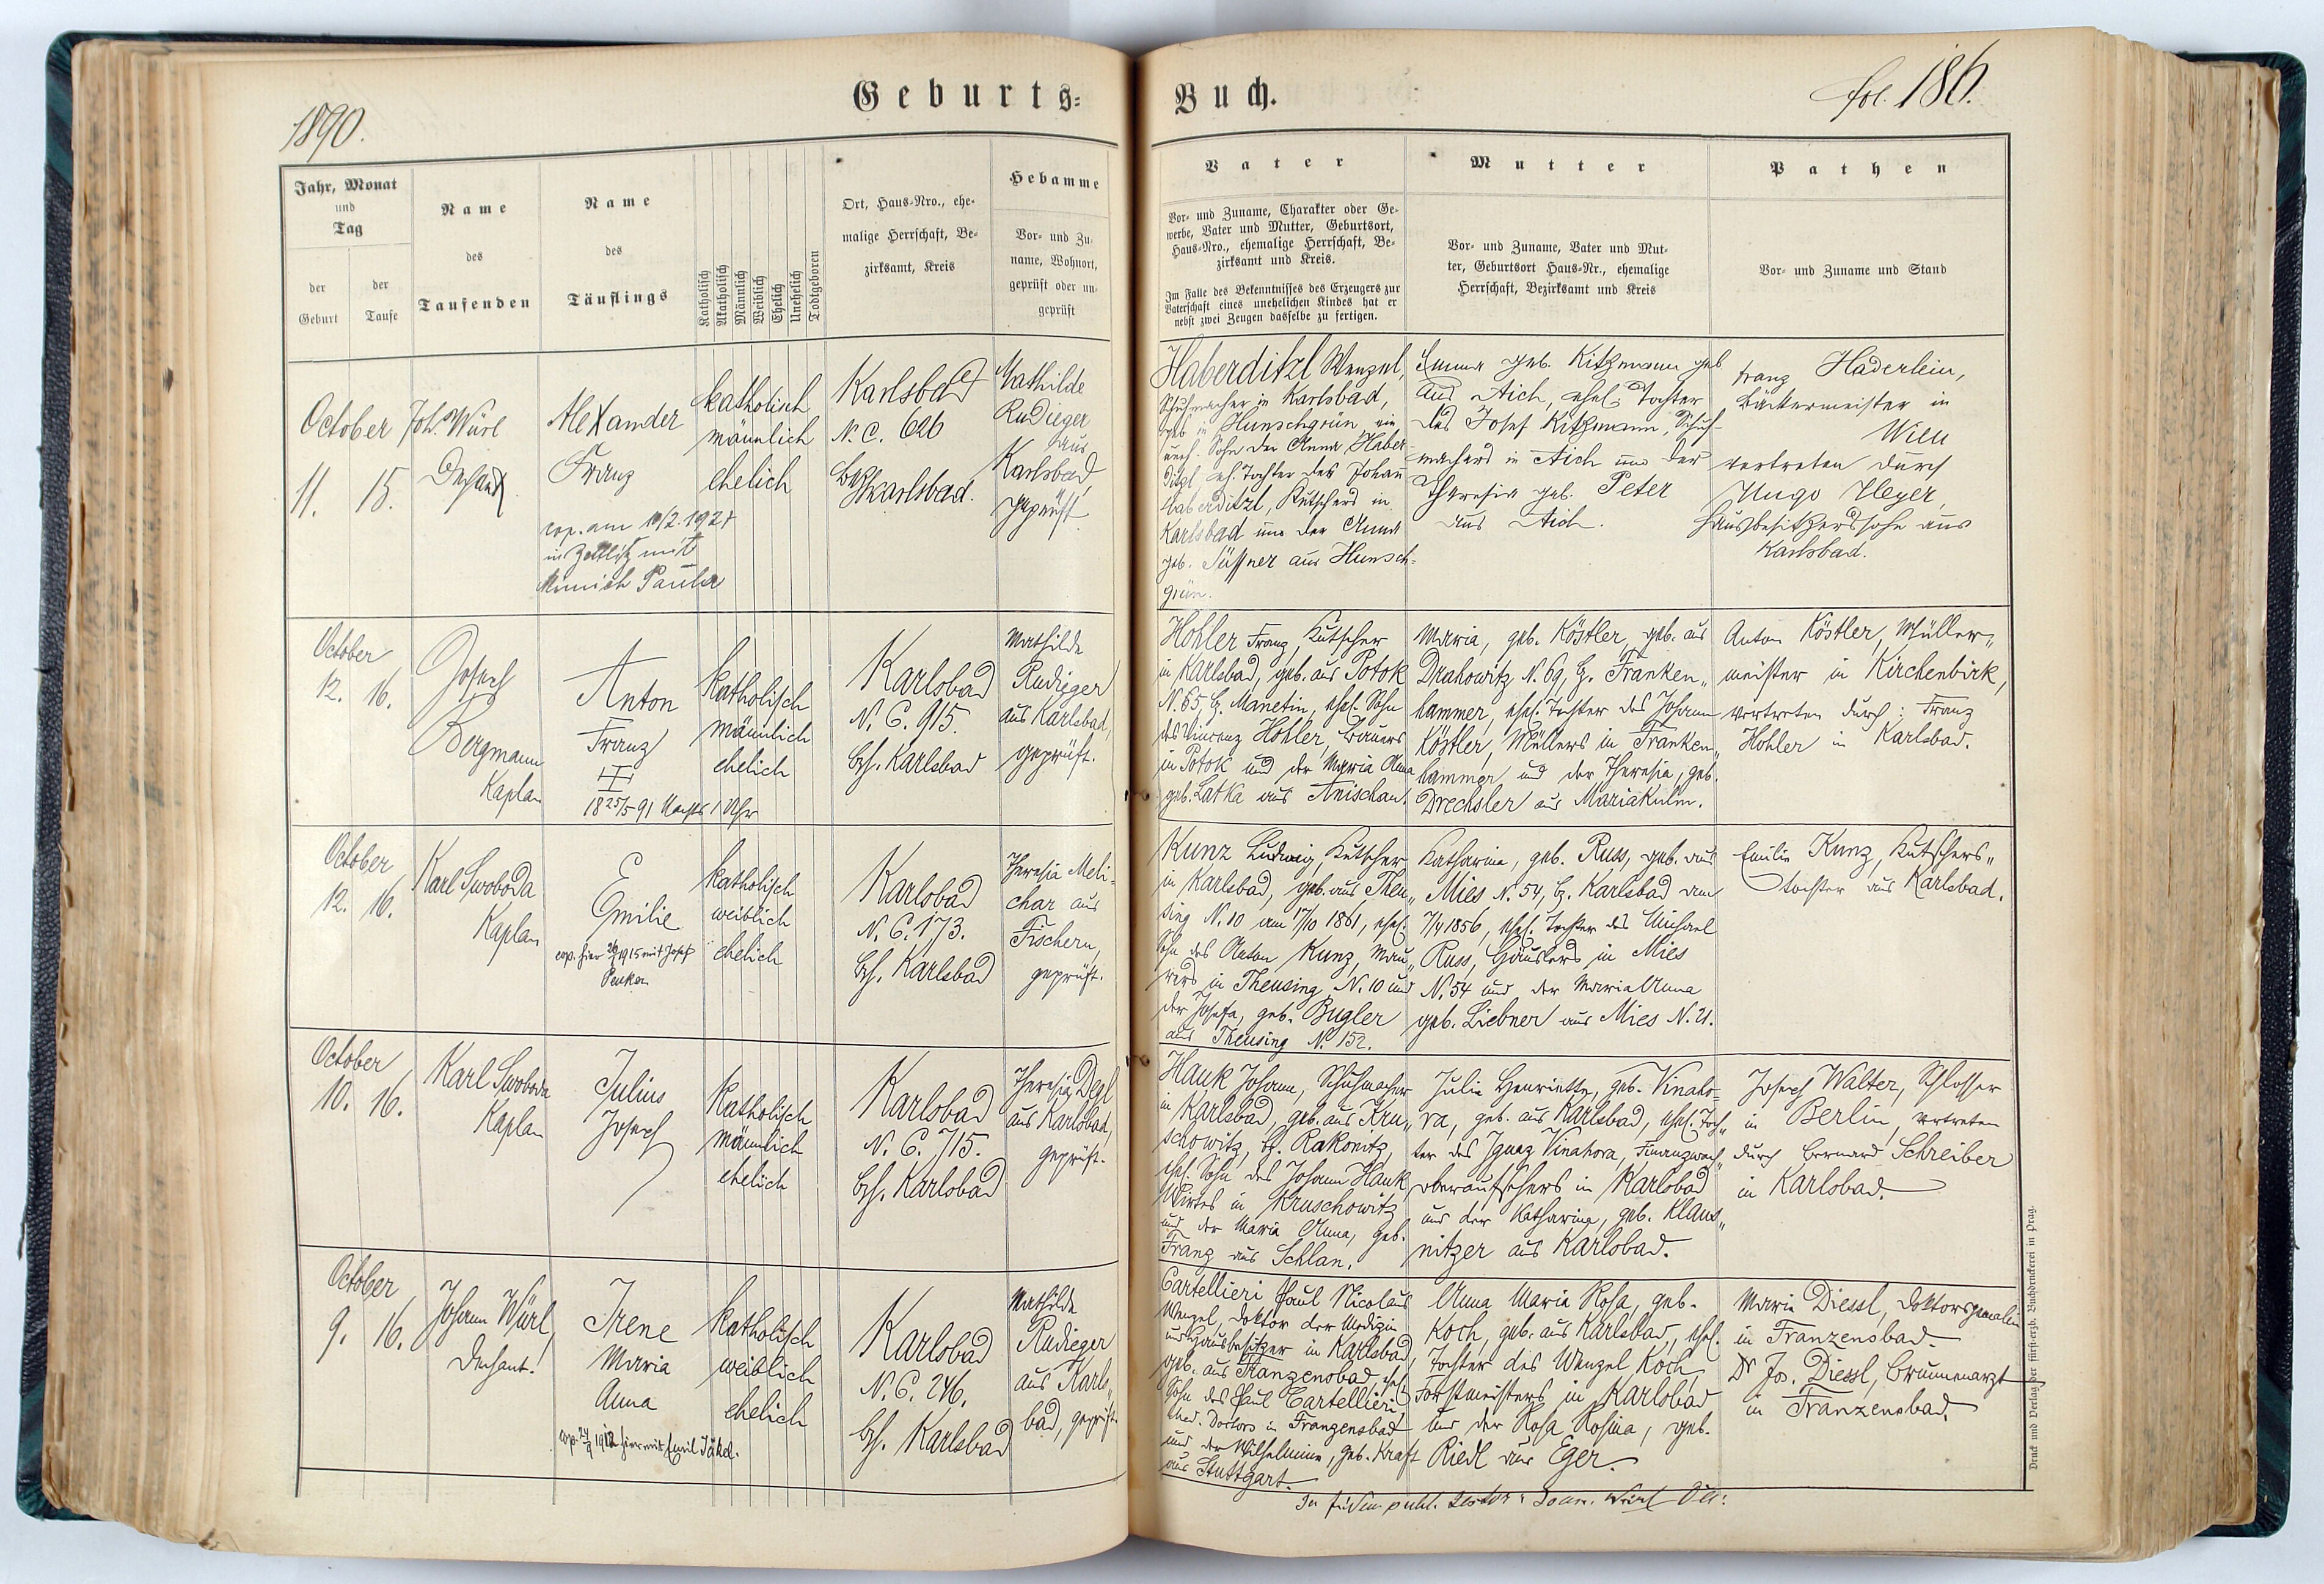 1890.
Geburts=
Buch.
fol. 186.
Jahr, Monat
und
Tag
der
Geburt
der
Taufe
Name
des
Taufenden
Name
des
Täuflings
Katholisch
Akatholisch
Männlich
Weiblich
Ehelich
Unehelich
Todtgeboren
Ort, Haus-Nro., ehe-
malige Herrschaft, Be-
zirksamt, Kreis
Hebamme
Vor- und Zu-
name, Wohnort,
geprüft oder un-
geprüft
Vater
Vor- und Zuname, Charakter oder Ge-
werbe, Vater und Mutter, Geburtsort,
Haus-Nro., ehemalige Herrschaft, Be-
zirksamt und Kreis.
Im Falle des Bekenntnisses des Erzeugers zur
Vaterschaft eines unehelichen Kindes hat er
nebst zwei Zeugen dasselbe zu fertigen.
Mutter
Vor- und Zuname, Vater und Mut-
ter, Geburtsort Haus-Nr., ehemalige
Herrschaft, Bezirksamt und Kreis
Pathen
Vor- und Zuname und Stand
October
11. 15.
Joh. Würl
Dechant
Alexander
Franz
cop. am 10/2. 1927
in Zettlitz mit
Münich Paula
katholisch
männlich
ehelich
Karlsbad
N. C. 626
Bzh Karlsbad.
Mathilde
Rudieger
aus
Karlsbad,
geprüft
Haberditzl Wenzel,
Schuhmacher in Karlsbad,
geb in Hunschgrün, ein
unehl. Sohn der Anna Haber-
ditzl, ehl. Tochter des Johann
Haberditzl, Kutschers in
Karlsbad und der Anna
geb. Süssner aus Hunsch-
grün.
Emma geb. Kitzmann geb
aus Aich, ehel. Tochter
des Josef Kitzmann, Schuh-
machers in Aich und der
Theresia geb. Peter
aus Aich.
Franz Häderlein,
Bäckermeister in
Wien
vertreten durch
Hugo Heyer,
Hausbesitzerssohn aus
Karlsbad.
October
12. 16.
Josef
Bergmann
Kaplan
Anton
Franz
18 25/5 91 Nachts 1 Uhr
katholisch
männlich
ehelich
Karlsbad
N. C. 915.
Bzh. Karlsbad
Mathilde
Rudigger
aus Karlsbad,
geprüft.
Hohler Franz, Kutscher
in Karlsbad, geb. aus Potok
N. 85, B. Manetin, ehel. Sohn
des Vincenz Hohler, Bauers
in Potok und der Maria Anna
geb. Latka aus Anischau.
Maria, geb. Köstler, geb. aus
Drahowitz N. 69, B. Franken„
hammer, ehel. Tochter des Johann
Köstler, Müllers in Franken„
hammer und der Theresia, geb.
Drechsler aus Mariakulm.
Anton Köstler, Müller„
meister in Kirchenbirk,
vertreten durch: Franz
Hohler in Karlsbad.
October
12. 16.
Karl Swoboda
Kaplan
Emilie
cop. hier 1915 mit Josef
katholisch
weiblich
ehelich
Karlsbad
N. C. 173.
Bzh. Karlsbad
Theresia Meli-
char aus
Fischern,
geprüft.
Kunz Ludwig, Kutscher
in Karlsbad, geb. aus Theu„
sing N. 10 am 17/10 1861, ehel.
Sohn des Anton Kunz, Mau„
rers in Theusing N. 10 und
der Josefa, geb. Bugler
aus Theusing N. 152.
Katharina, geb. Russ, geb. aus
Mies N. 54, B. Karlsbad am
7/4 1856, ehel. Tochter des Michael
Russ, Häuslers in Mies
N. 54 und der Maria Anna
geb. Liebner aus Mies N. 21.
Emilie Kunz, Kutschers„
tochter aus Karlsbad.
October
10. 16.
Karl Swoboda
Kaplan
Julius
Josef
katholisch
männlich
ehelich
Karlsbad
N. C. 715.
Bzh. Karlsbad
Theresia Degl
aus Karlsbad,
geprüft.
Hauk Johann, Schuhmacher
in Karlsbad, geb. aus Kru„
schowitz, B. Rakonitz,
ehel. Sohn des Johann Hauk
Wirtes in Kruschowitz
und der Maria Anna, geb.
Franz aus Schlan.
Julie Henriette, geb. Vinaho-
ra, geb. aus Karlsbad, ehel. Toch„
ter des Ignaz Vinahora, Finanzwach„
oberaufsehers in Karlsbad
und der Katharina, geb. Klaus„
nitzer aus Karlsbad.
Josef Walter, Schlosser
in Berlin, vertreten
durch Bernard Schreiber
in Karlsbad.
October
9. 16.
Johann Würl,
Dechant.
Irene
Maria
Anna
cop. 24/9 1912 hier mit Emil Jäkel.
katholisch
weiblich
ehelich
Karlsbad
N. C. 246.
Bzh. Karlsbad
Mathilde
Rudieger
aus Karls„
bad, geprüft.
Cartellieri Paul Nicolaus
Wenzel, Doktor der Medizin
und Hausbesitzer in Karlsbad,
geb. aus Franzensbad, ehel.
Sohn des Paul Cartellieri,
Med. Doctors in Franzensbad
und der Wilhelmine, geb. Kraft
aus Stuttgart.
Anna Maria Rosa, geb.
Koch, geb. aus Karlsbad, ehel.
Tochter des Wenzel Koch
Forstmeisters in Karlsbad
und der Rosa Rosina, geb.
Riedl aus Eger.
Maria Diessl, Doktorsgemalin
in Franzensbad
Dr Jos. Diessl, Brunnenarzt
in Franzensbad.
In fidem publ. testor: Joan. Würl Dec:
Druck und Verlag der fürst-erzb. Buchdruckerei in Prag.